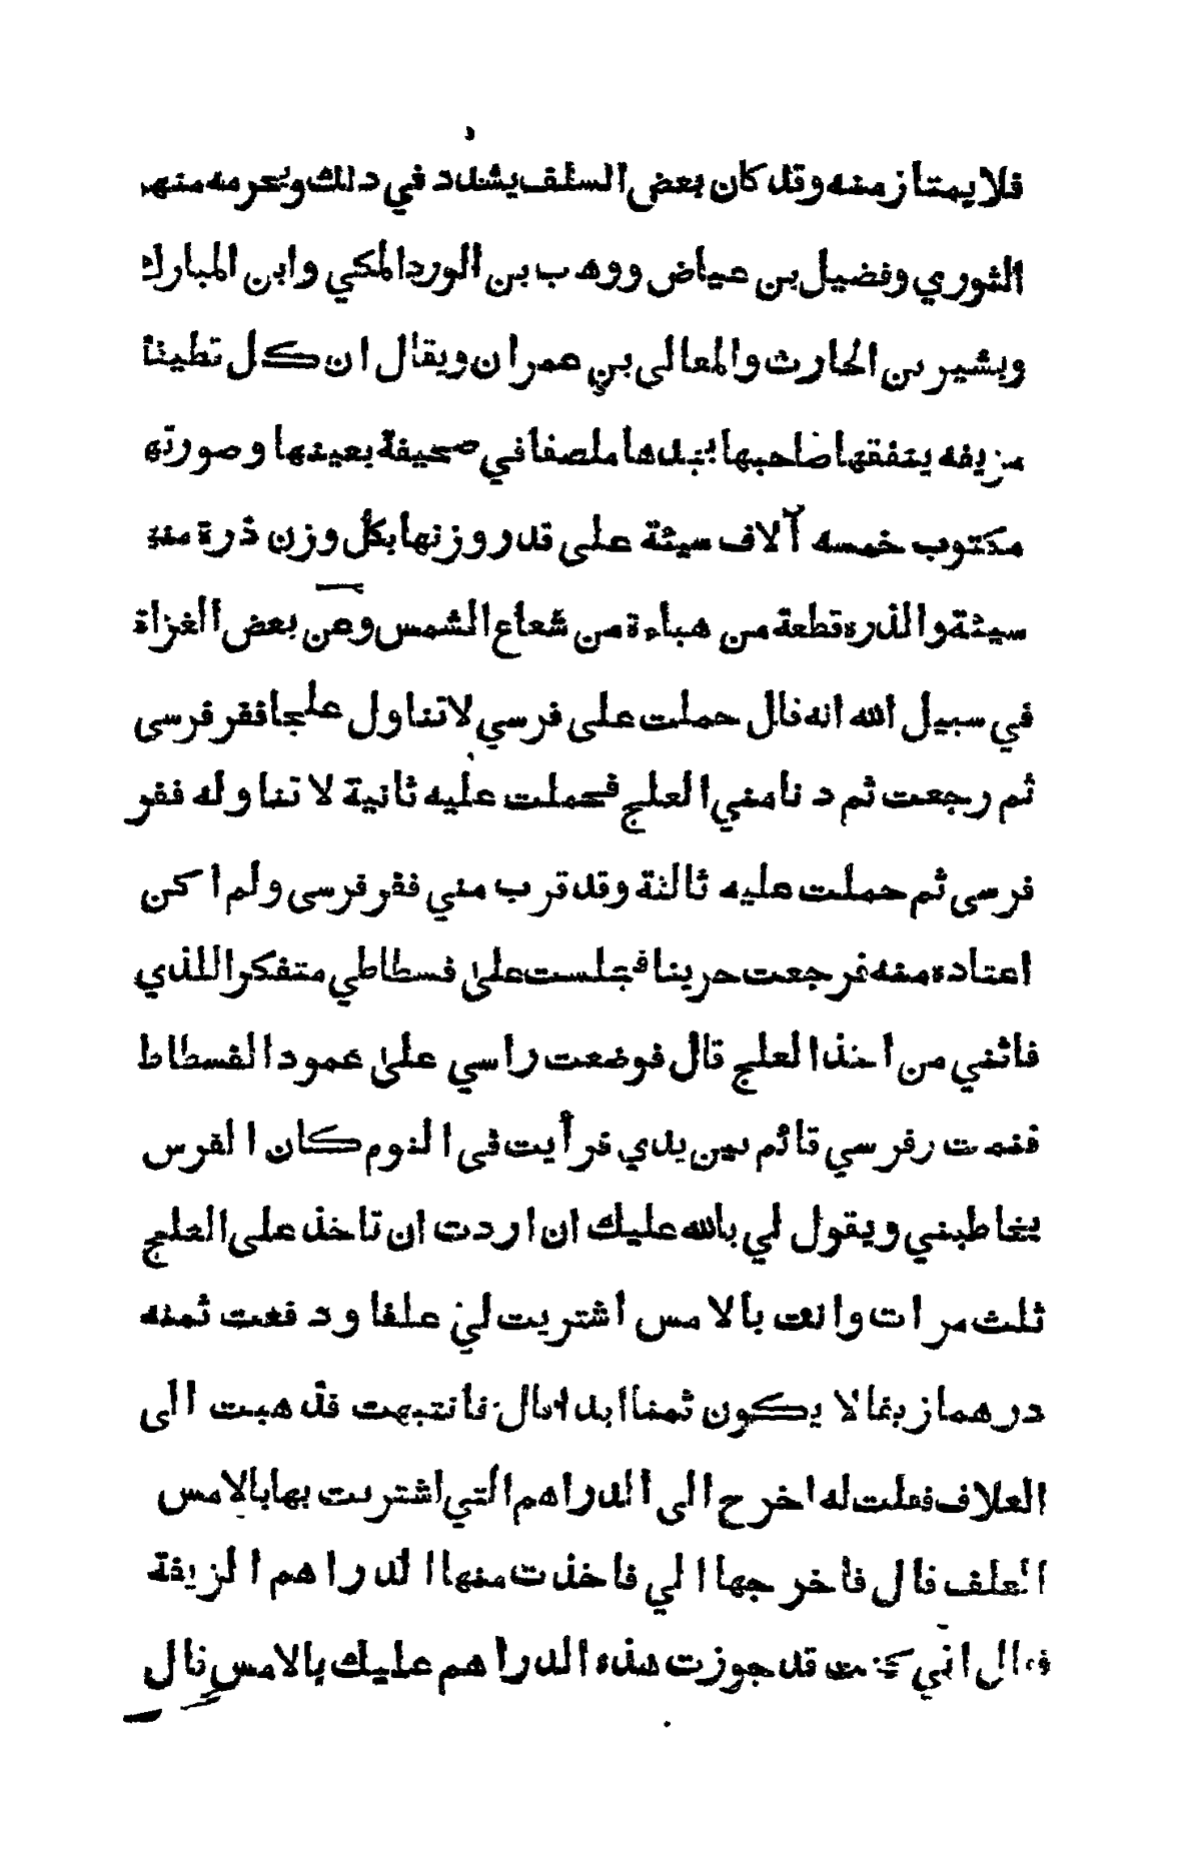 فلا يمتاز منه وقد كان بعض السلف يشدد في ذلك ويحرمه منهم
الثوري وفضيل بن عياض ووهب بن الورد المكي وابن المبارك
وبشير بن الحارث والمعالى بن عمران ويقال ان كل تطيئة
مزيفه ينفقها صاحبها ملصقا في صحيفة بعينها وصورتها
مكتوب خمسه آلاف سيئة على قدر وزنها بكل وزن ذرة منه
سيئة والذره قطعة من هباءة من شعاع الشمس وعن بعض الغزاة
في سبيل الله انه قال حملت على فرسي لاتناول علجا فقر فرسى
ثم رجعت ثم دنا مني العلج فحملت عليه ثانية لاتناوله فقر
فرسى ثم حملت عليه ثالثة وقد قرب مني فقر فرسى ولم اكن
اعتاده منه فرجعت حزينا فجلست على فسطاطي متفكرا للذي
فاتني من اخذ العلج قال فوضعت راسي على عمود الفسطاط
فنمت وفرسي قائم بين يدي فرأيت فى النوم كان الفرس
يخاطبني ويقول لي بالله عليك ان اردت ان تاخذ على العلج
ثلث مرات وانت بالامس اشتريت لي علفا ودفعت ثمنه
درهما زيفا لا يكون ثمنا ابدا قال فانتبهت فذهبت الى
العلاف فقلت له اخرج الى الدراهم التي اشتريت بها بالامس
العلف قال فأخرجها الي فاخذت منها الدراهم الزيفة
فقال اني كنت قد جوزت هذه الدراهم عليك بالامس قال